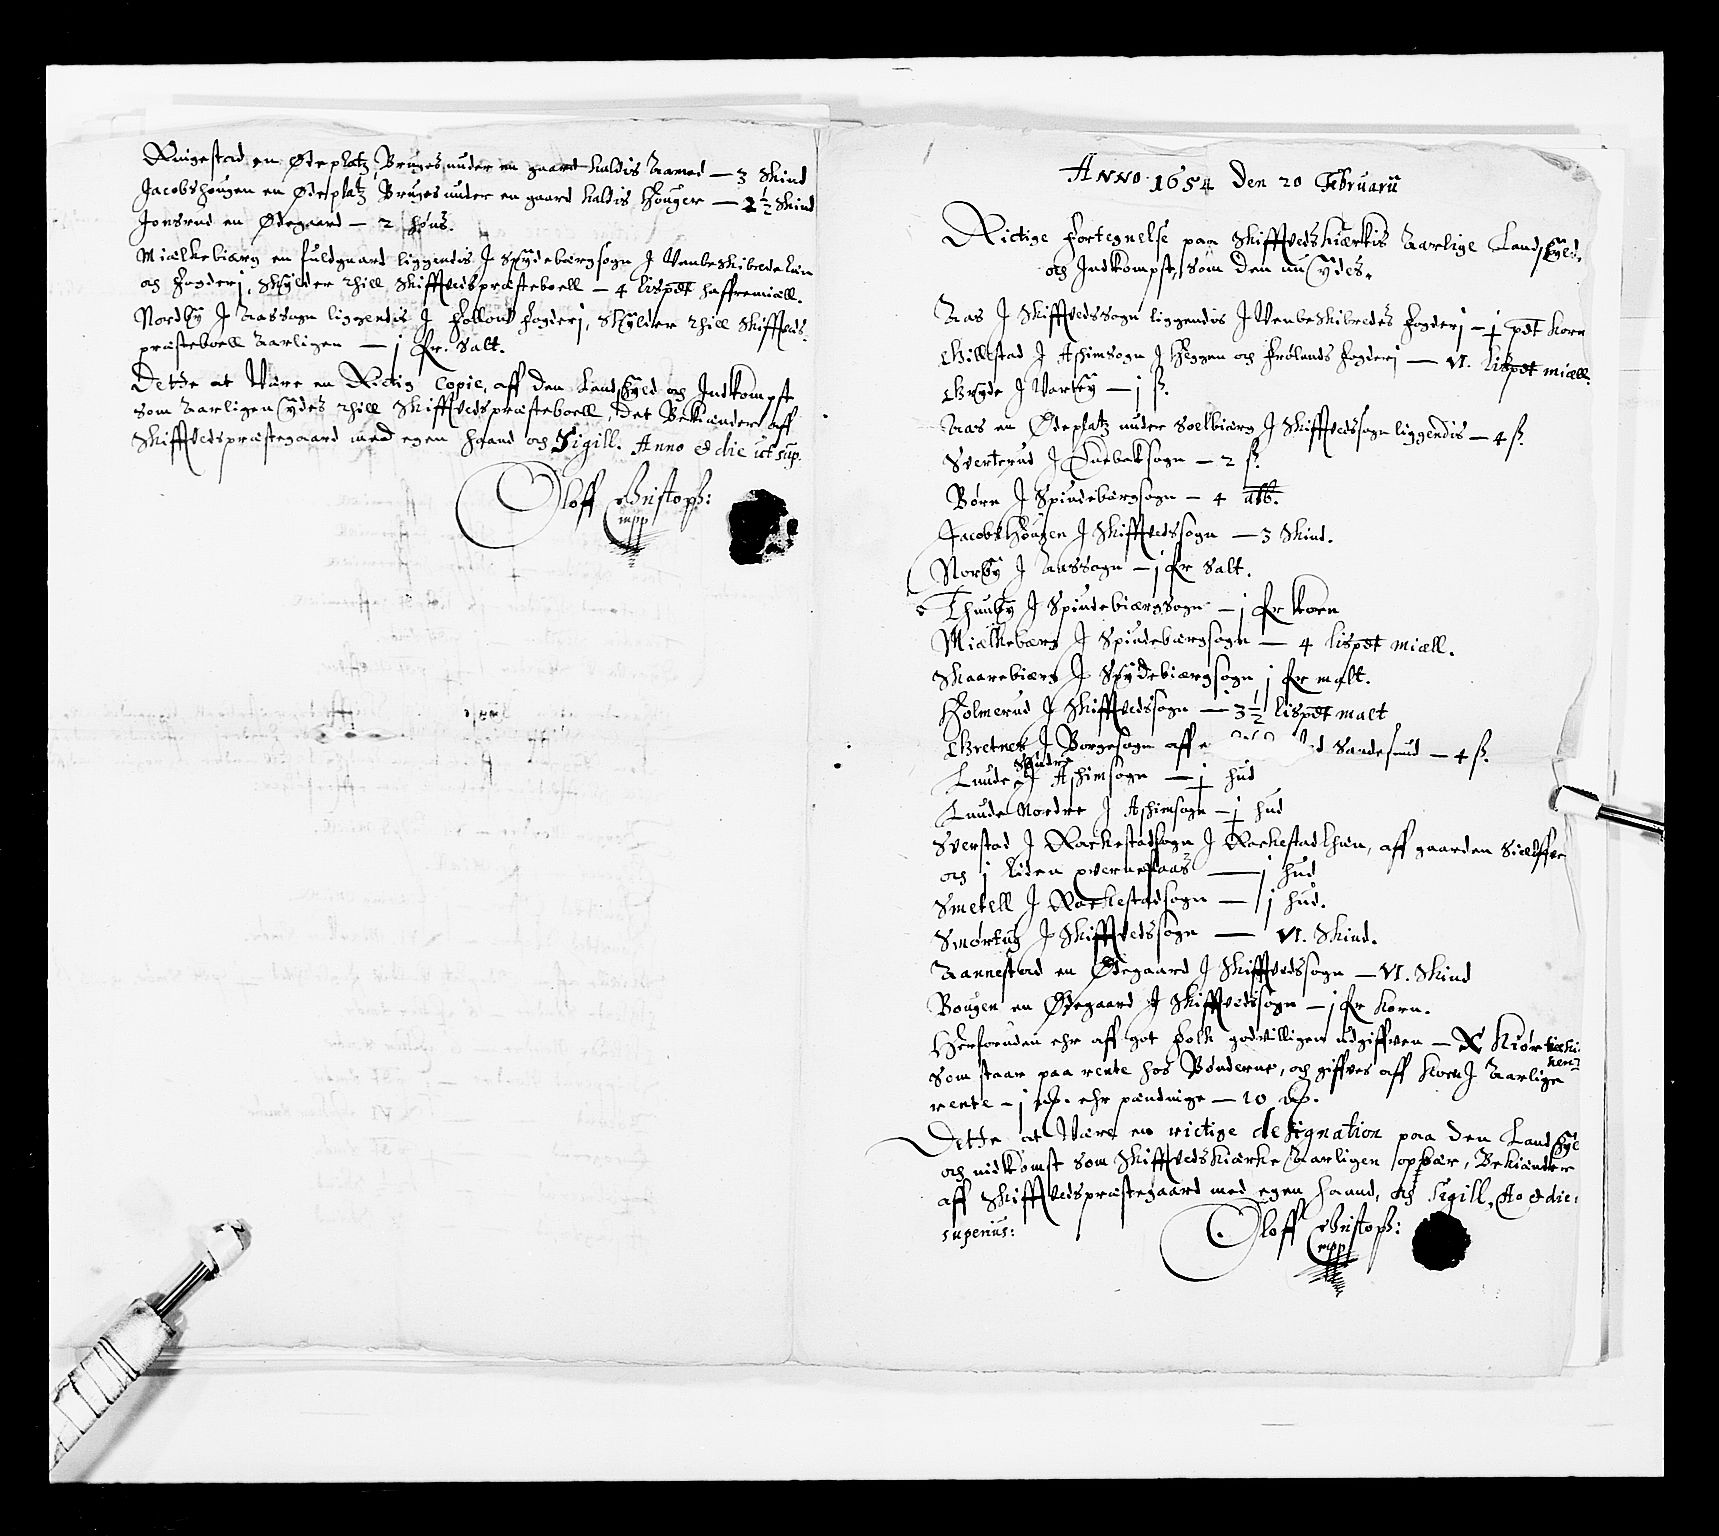 Ringestad en Ødeplatz, Bruges under en gaard kaldis Aamod — 3 Skind
Jacobshougen en Ødeplatz Bruges under en gaard kaldis Houger — 2 1/2 Skind
Jonsrud en Ødegaard — 2 høns.
Miælkebiærg en fuldgaard liggendis J Spydebærgsogn J Wembeskibrede Læn
och fogderj, Skylder thill Skiffuedspræsteboell — 4 lispdt haffremiæll.
Nordby J Aassogn liggendis J Follow fogderj, Skylder thill Skiffueds
præsteboell Aarligen — j fr. Salt.
Dette at Være en Rictig Copie, aff den Landskyld och Indkompst
som Aarligen Lydes thill Skiffuedspræsteboell Det Bekiender aff
Skiffuedspræstegaard med egen haand och Sigill. Anno et die ut sup.
Oloff Christoph:
mpp
Anno 1654 Den 20 Februarii
Rictige fortegnelse paa Skiffuedskiærkis Aarlige Landskyld,
och Indkompst, som den nu Lydes.
Aas J Skiffuedssogn liggendis J Wembeskibredes fogderj — j pdt korn
Gillestad J Ashimsogn J Heggen och Frølands fogderj — VI. lispdt miæll.
Gryde J Varby — j ß.
Aas en Ødeplatz under Soelbiærg J Skiffuedssogn liggendis — 4 ß.
Sverterud J Enebaksogn — 2 ß.
Børn J Spindebærgsogn — 4 alb.
Jacobshougen J Skiffuedssogn — 3 Skind.
Norby J Aassogn — j fr Salt.
Thunby J Spindebiærgsogn — j fr korn
Miælkebærg J Spindebærgsogn — 4 lispdt miæll.
Skaarebiærg J Spydebiærgsogn j fr malt.
Holmerud J Skiffuedssogn — 3 1/2 lispdt malt
Gretnes J Borgesogn aff Sandesund — 4 ß.
Lunde Søndre J Ashimsogn — j hud
Lunde Nordre J Ashimsogn — j hud
Sverstad J Rackestadsogn J Rackestadlhæn, aff gaarden Siælffue
och j liden qverneflaas — j hud
Smetell J Rackestadsogn — j hud.
Smørtug J Skiffuedssogn — VI. Skind.
Aannestad en Ødegaard J Skiffuedssogn — VI. Skind
Bougen en Ødegaard J Skiffuedssogn — j fr korn.
Herforuden ehr aff got folk godvilligen udgiffven — X Kiør
som staar paa rente hos Bønderne, och giffves aff huer J Aarlige
rente — j ehr pændinge — 10
Dette at Være en rictige designation paa den Landskyld
och indkomst som Skiffuedskiærke Aarligen opbær, Bekiænder
aff Skiffuedspræstegaard med egen haand, och Sigill, Ao et die:
superius:
Oloff Christoph:
mpp